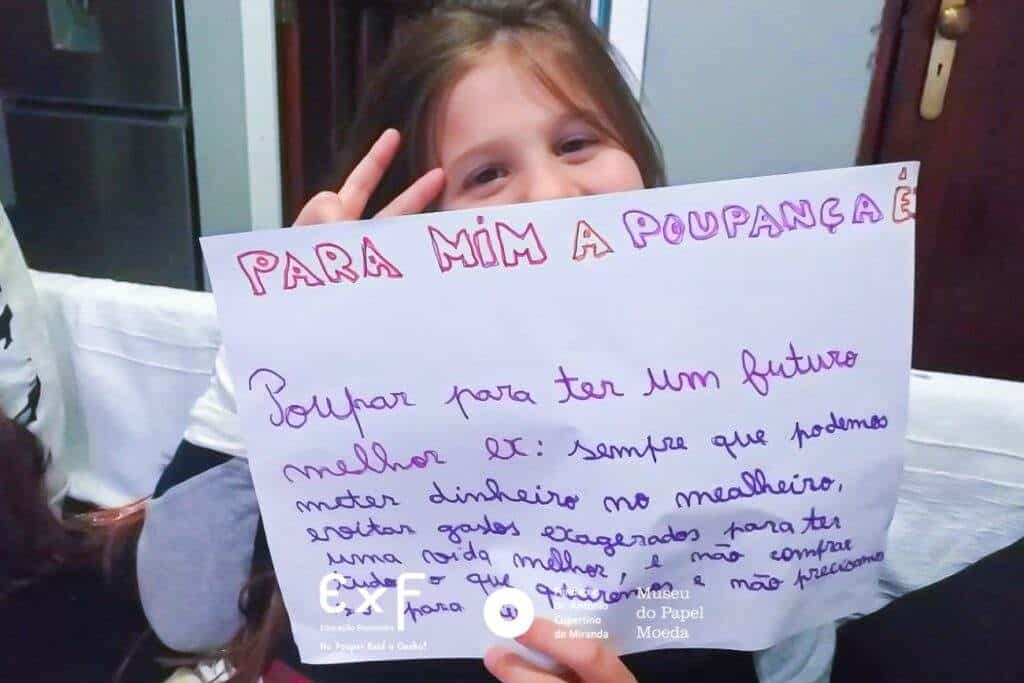 PARA MIM A POUPANÇA É
Poupar para ter um futuro
melhor ex: sempre que podemos
meter dinheiro no mealheiro,
evitar gastos exagerados para ter
uma vida melhor, e não comprar
tudo o que queremos e não precisamos
só para
ExF
Educação Financeira
No Poupar Está o Ganho!
Fundação
Dr. António
Cupertino
de Miranda
Museu
do Papel
Moeda